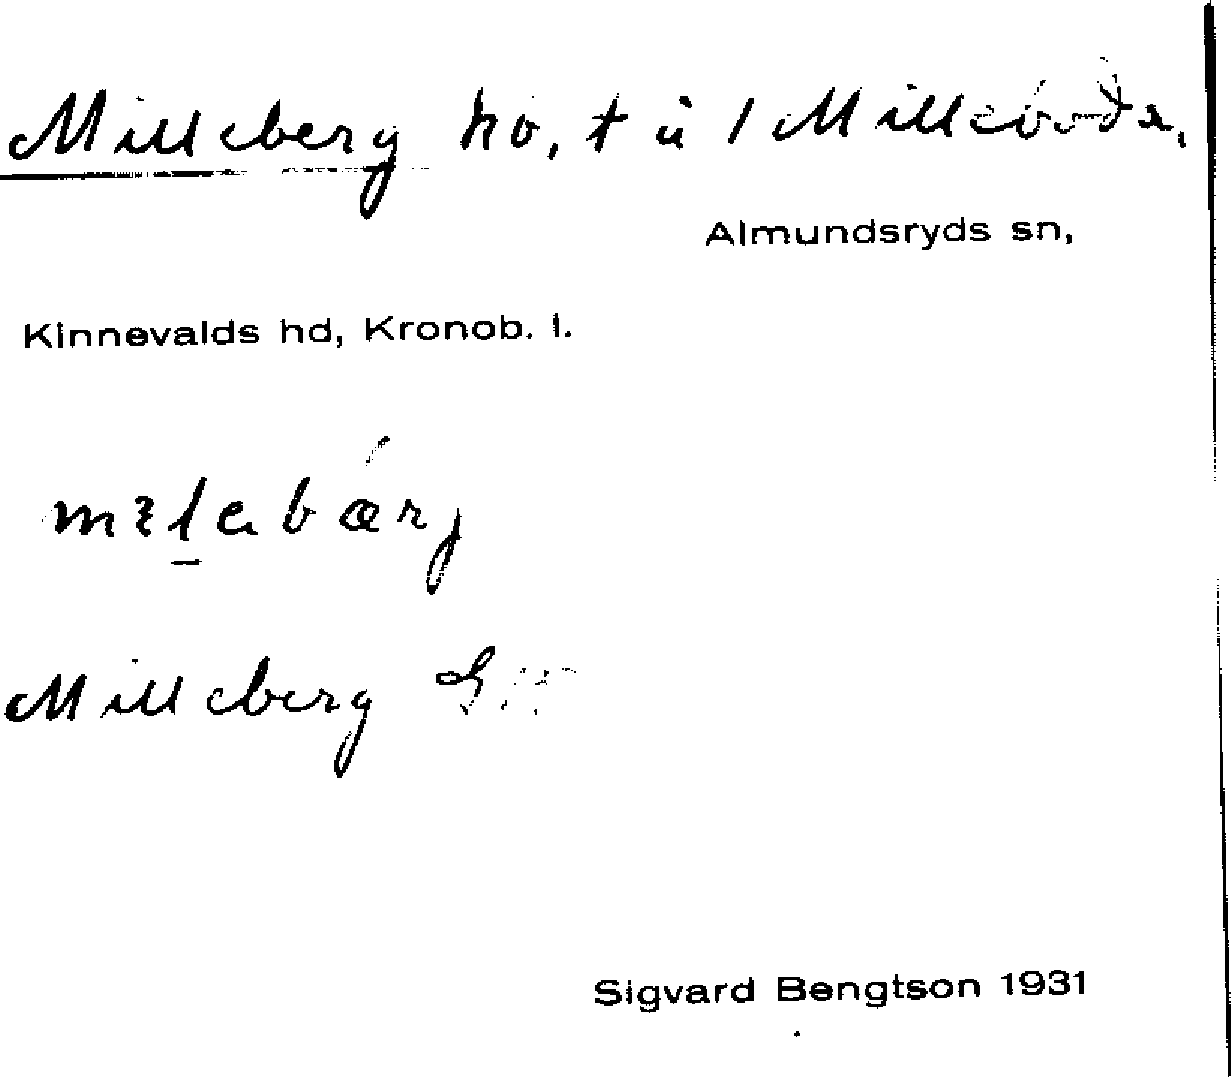 Milleberg ho, t u 1 Milleboda,
Almundsryds sn,
Kinnevalds hd, Kronob. l.
Milleberg
Sigvard Bengtson 1931